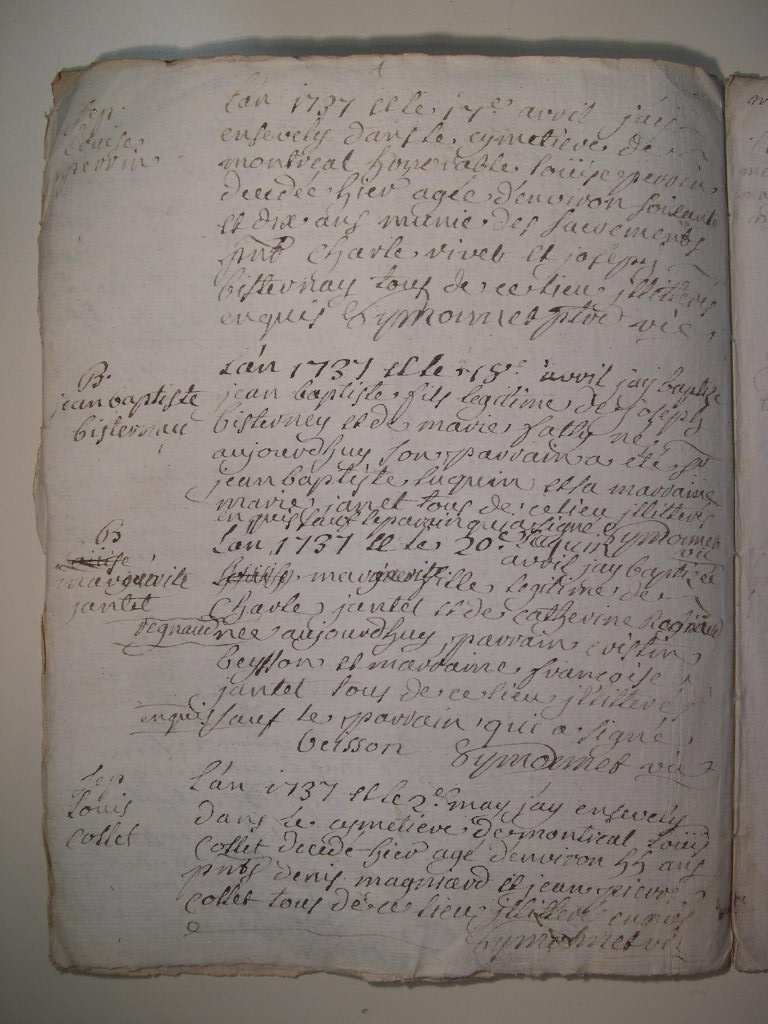 Sep
louise
perrin
L'an 1737 et le 17e avril j'ay
ensevely dans le cymetiere de
montreal honnorable louise perrin
decedée hier agée d'environ soixante
et dix ans munie des sacrements
pnts charle rivet et joseph
bisternay tous de ce lieu jllitterés
enquis Symonnet ptre vic
B
jean baptiste
bisternay
L'an 1737 et le 18e avril jay baptizé
jean baptiste fils legitime de joseph
bisterney et de marie né
aujourdhuy son parrain a eté sr
jean baptiste luquin et sa marraine
marie janet tous de ce lieu jllitterés
enquis sauf le parrain qui a signé Symonnet
luquin vic
B
marguerite
jantet
L'an 1737 et le 20e avril jay baptizée
marguerite fille legitime de
Charle jantet et de Catherine Regnaud
regnaud née aujourdhuy parrain cristin
beysson et marraine françoise
jantet tous de ce lieu jllitterés
enquis sauf le parrain qui a signé
beisson Symonnet vic
Sep
Louis
collet
L'an 1737 et le 2e may jay ensevely
dans le cymetiere de montreal louis
collet decedé hier agé d'environ 55 ans
pnts denis magniard et jean pierre
collet tous de ce lieu jllitterés enquis
Symonnet vic